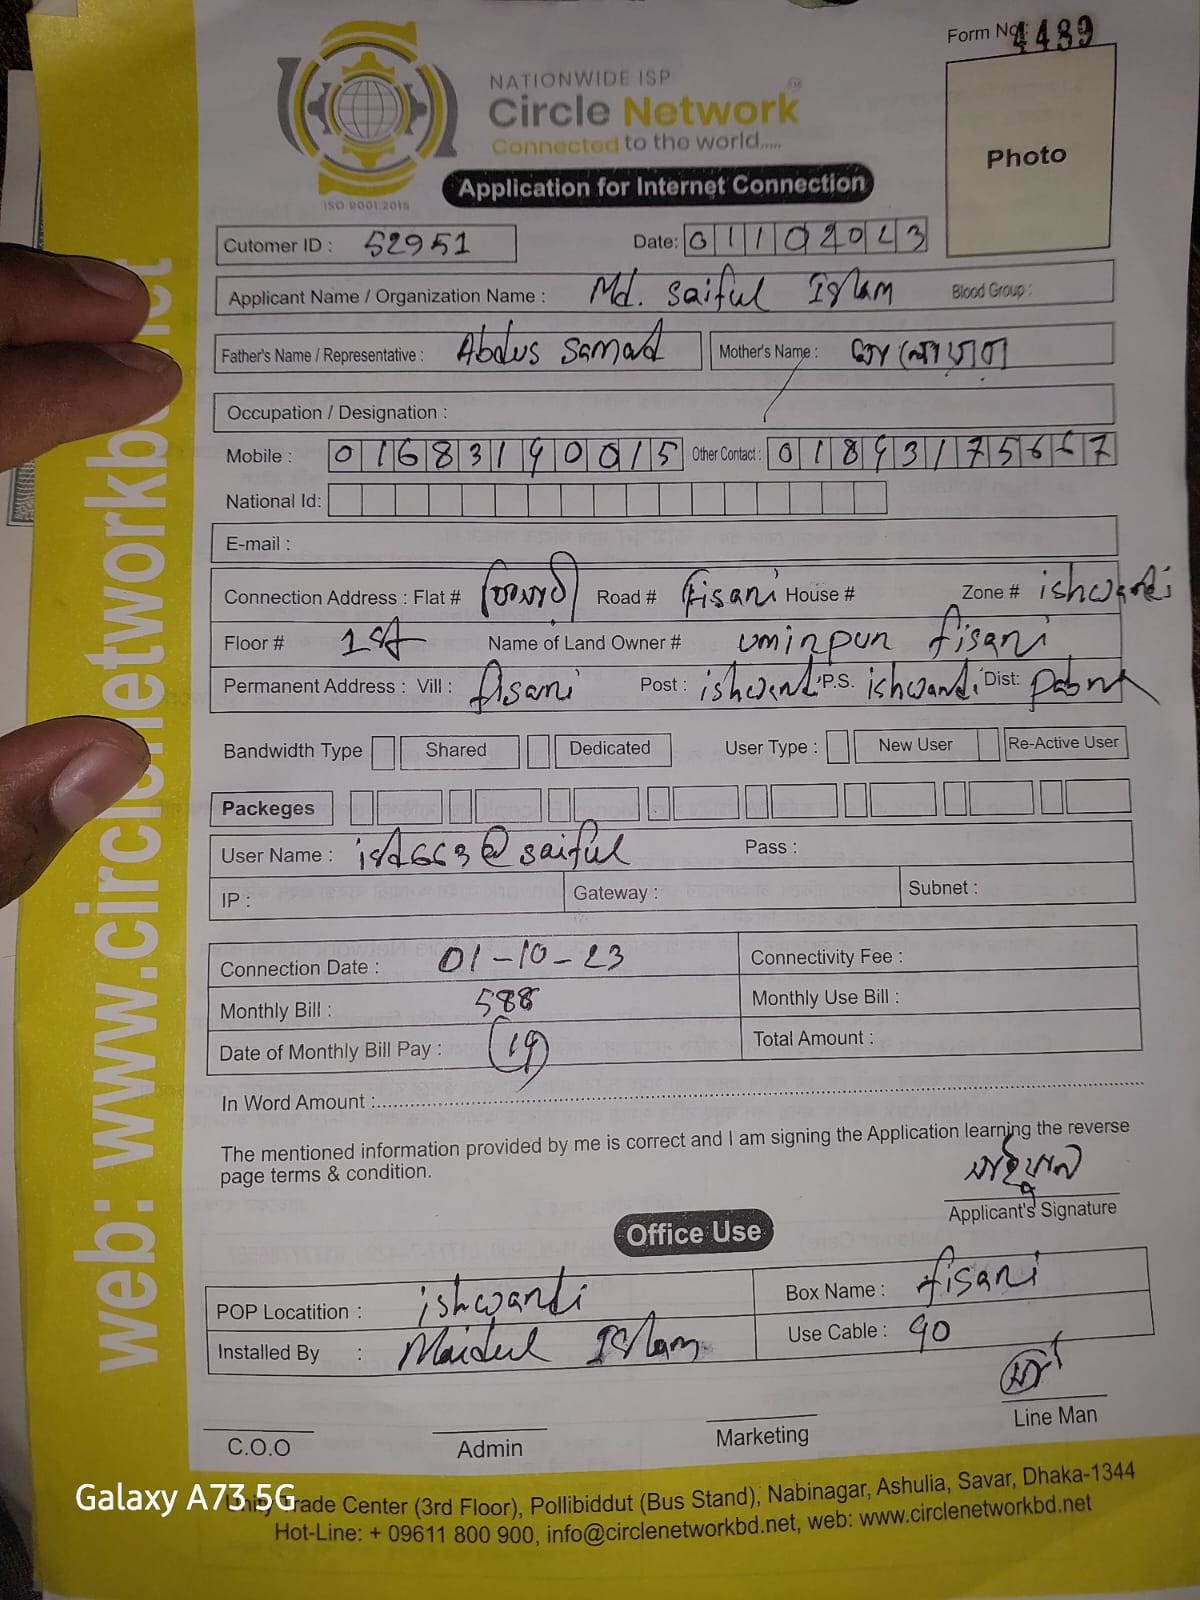 Form No: 4489
NATIONWIDE ISP
Circle Network
Connected to the world.....
ISO 9001:2015
Application for Internet Connection
Photo
Cutomer ID : 52951 Date: 01102023
Applicant Name / Organization Name : Md. Saiful Islam Blood Group :
Father's Name / Representative : Abdus Samad Mother's Name :
Occupation / Designation :
Mobile : 01683190015 Other Contact :
National Id:
E-mail :
Connection Address : Flat # Road # House # Zone # ishwardi
Floor # 1st Name of Land Owner #
Permanent Address : Vill : Post : ishwardi P.S. ishwardi Dist: Pabna
Bandwidth Type Shared Dedicated User Type : New User Re-Active User
Packeges
User Name : Pass :
IP : Gateway : Subnet :
Connection Date : 01-10-23 Connectivity Fee :
Monthly Bill : 588 Monthly Use Bill :
Date of Monthly Bill Pay : Total Amount :
In Word Amount :
The mentioned information provided by me is correct and I am signing the Application learning the reverse
page terms & condition.
সাইফুল
Applicant's Signature
Office Use
POP Locatition : ishwardi Box Name :
Installed By : Maidul Islam Use Cable : 90
C.O.O Admin Marketing Line Man
Trade Center (3rd Floor), Pollibiddut (Bus Stand), Nabinagar, Ashulia, Savar, Dhaka-1344
Hot-Line: + 09611 800 900, info@circlenetworkbd.net, web: www.circlenetworkbd.net
web: www.circlenetworkbd.net
Galaxy A73 5G